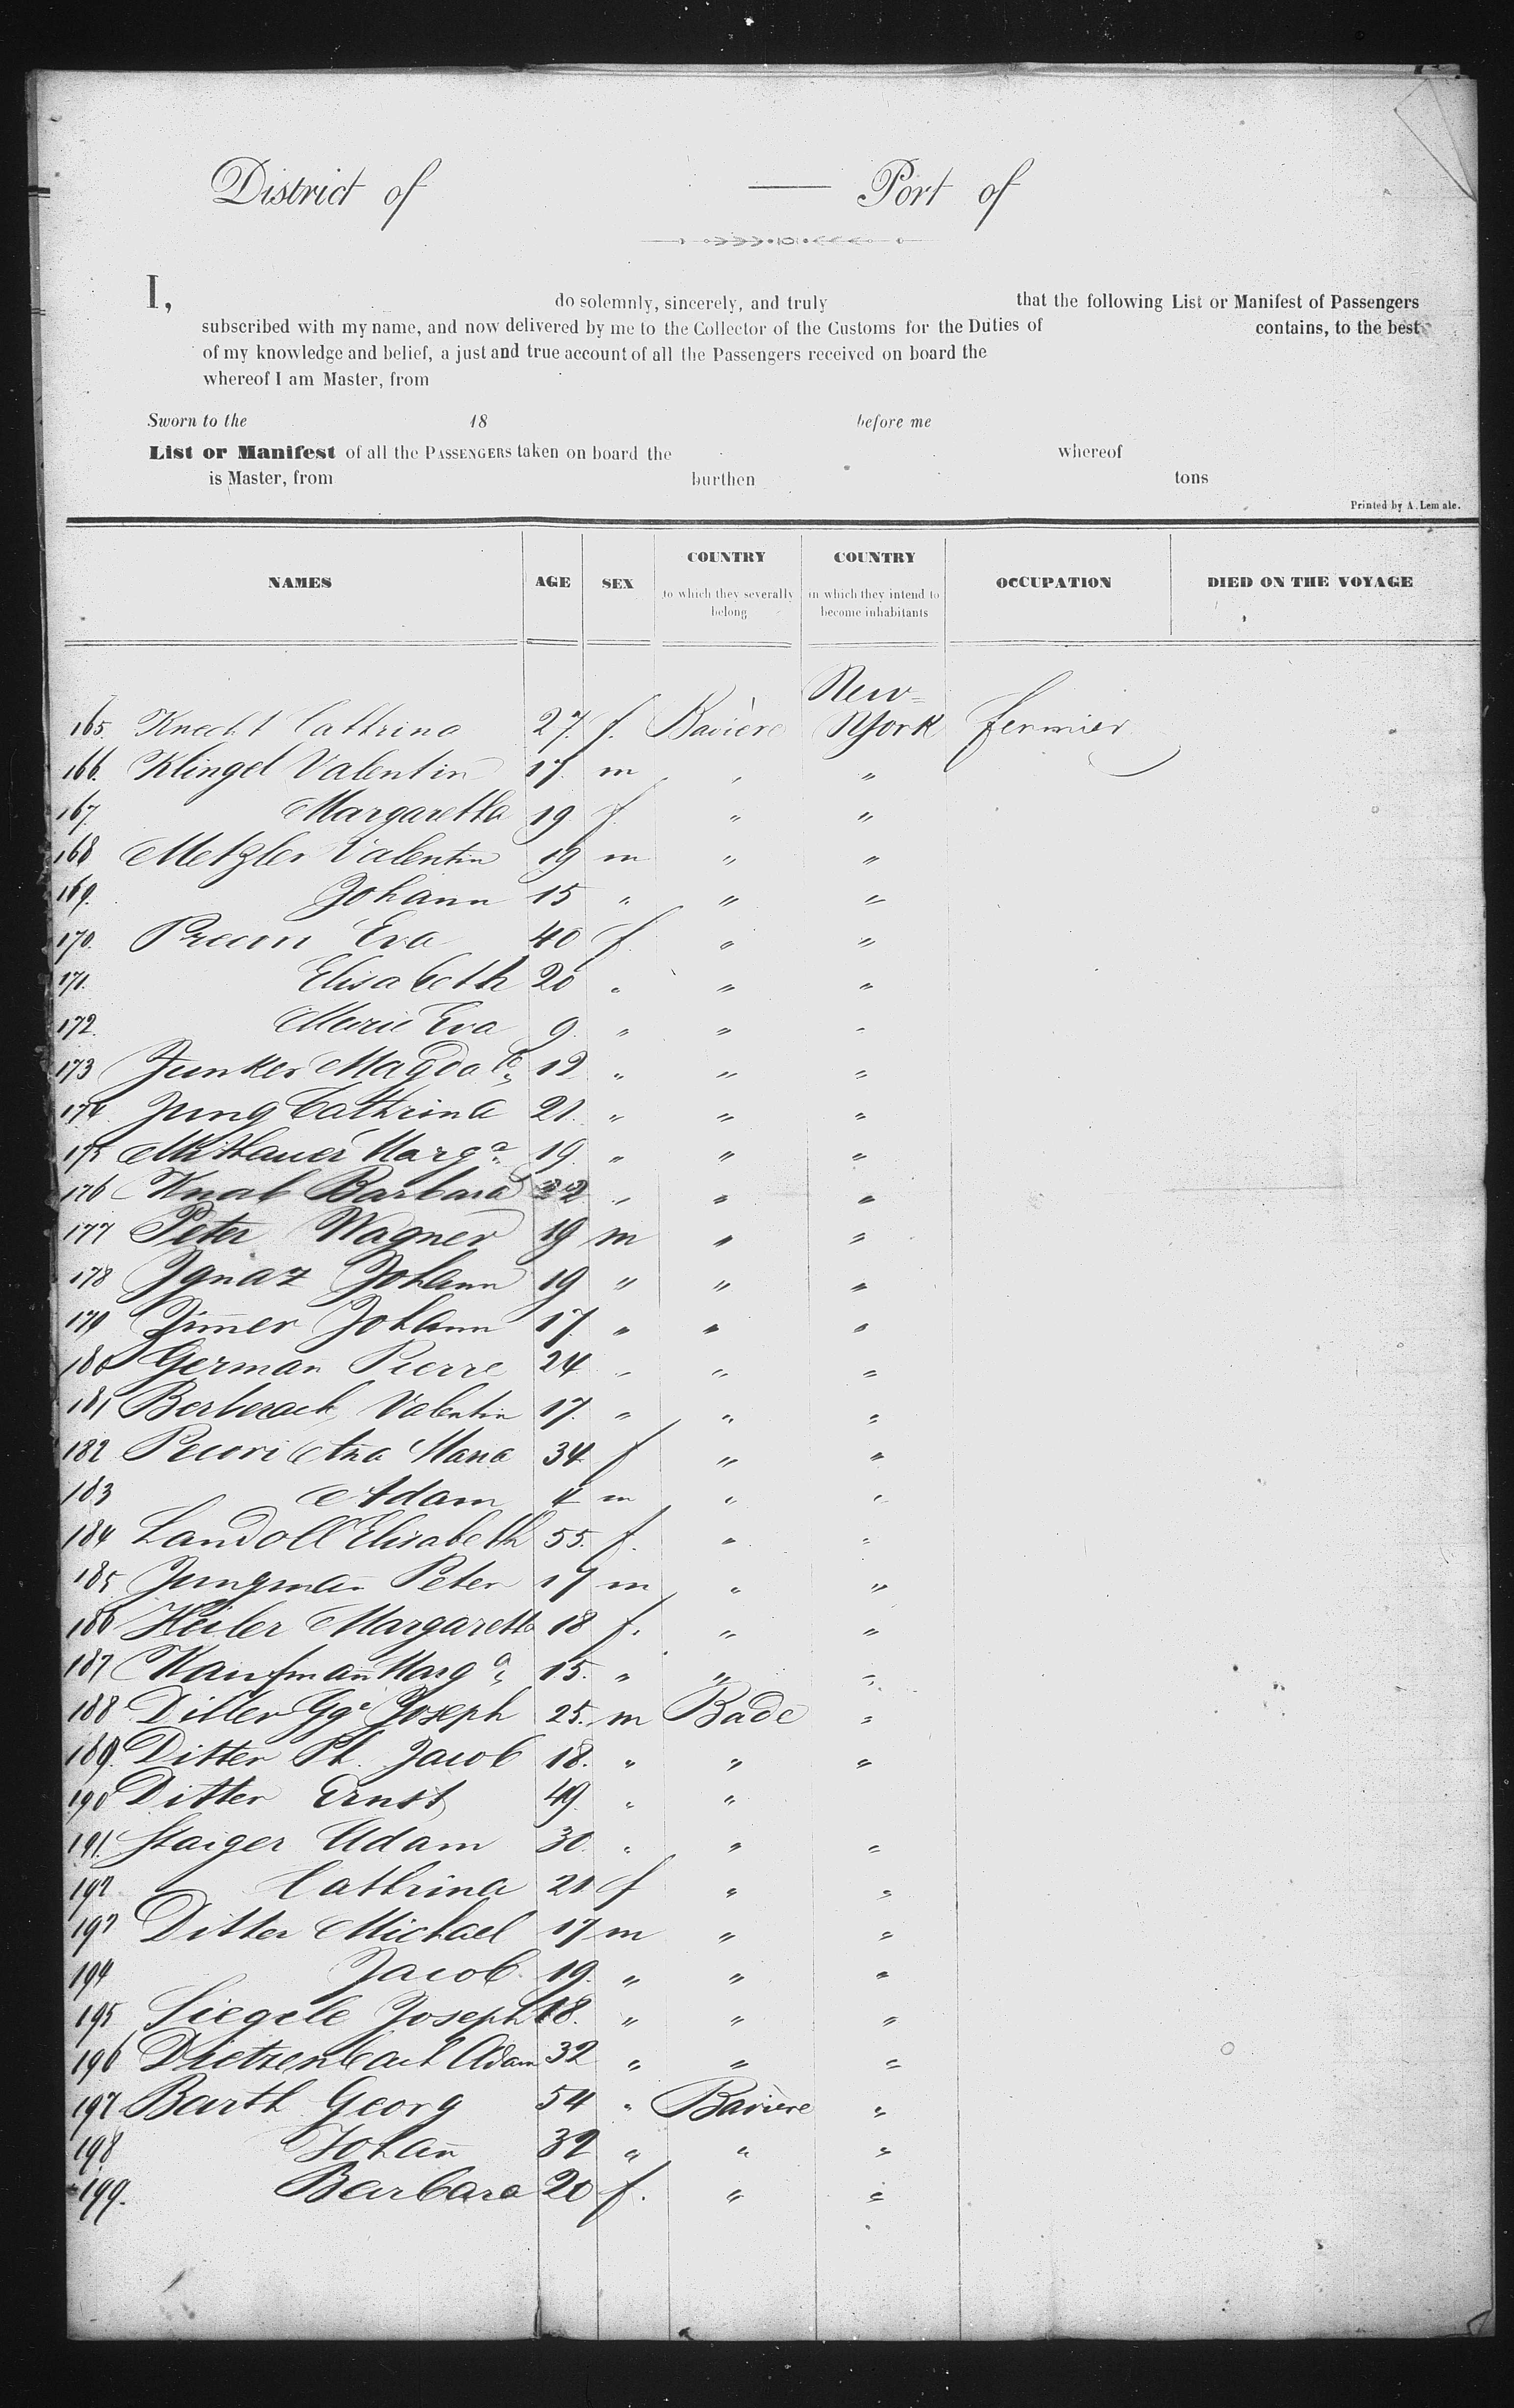 District of — Port of
I, do solemnly, sincerely, and truly that the following List or Manifest of Passengers
subscribed with my name, and now delivered by me to the Collector of the Customs for the Duties of contains, to the best
of my knowledge and belief, a just and true account of all the Passengers received on board the
whereof I am Master, from
Sworn to the 18 before me
List or Manifest of all the PASSENGERS taken on board the whereof
is Master, from burthen tons
Printed by A. Lemale.
NAMES AGE SEX COUNTRY to which they severally belong COUNTRY in which they intend to become inhabitants OCCUPATION DIED ON THE VOYAGE
165. Knecht Cathrina 27. f. Baviere New-York fermier
166. Klingel Valentin 17. m " "
167. Margaretha 19 f. " "
168 Metzler Valentin 19 m " "
169. Johann 15 " " "
170. Eva 40 f. " "
171. Elisabeth 20 " " "
172. Marie Eva 9. " " "
173 Junker Magdale 12 " " "
174. Jung Cathrina 21. " " "
175 Marga 19. " " "
176 Knab Barbara 32 " " "
177 Peter Wagner 19 m " "
178 Ignaz Johann 19 " " "
179 Zimer Johann 17. " " "
180 German Pierre 24 " " "
181 Berberach Valentin 17. " " "
182 Pecori Ana Maria 34 f " "
183 Adam 4 m " "
184 Landoll Elisabeth 55. f. " "
185 Jungman Peter 17 m " "
186 Heiler Margaretha 18 f. " "
187 Kaufmann Marga 15. " " "
188 Ditter Gge Joseph 25. m Bade "
189. Ditter Pt. Jacob 18. " " "
190 Ditter Ernst 49. " "
191. Staiger Adam 30. " " "
192 Cathrina 21 f " "
193 Ditter Michael 17 m " "
194 Jacob 19. " " "
195 Siegele Joseph 18. " " "
196 Adam 32 " " "
197 Barth Georg 54 " Baviere "
198 Johan 32 " " "
199. Barbara 20 f. " "